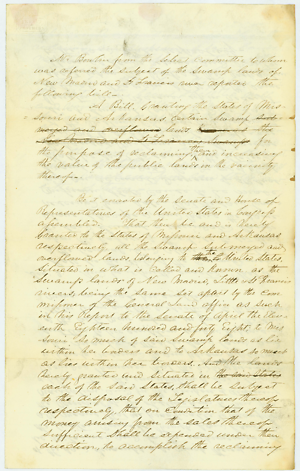 Mr Benton from the select Committee to whom
was referred the subject of the swamp lands of
New Madrid and St Francis river reported the
following bill—
A Bill Granting the States of Mis-
souri and Arkansas certain swamp
lands
for
the purpose of reclaiming them and increasing
the value of the public lands in the vicinity
thereof.
Be it enacted by the Senate and House of
Representatives of the United States in Congress
assembled, That there be and is hereby
granted to the States of Missouri and Arkansas
respectively all the swamp, submerged and
overflowed lands, belonging to the United States,
situated in what is called and known as the
swamp lands of New Madrid, Little & St Francis
rivers, being the same so reported by the Com-
missioner of the General Land office as such
in his Report to the Senate of April the eleven
th Eighteen Hundred and forty eight, to Mis-
souri so much of said swamp lands as lies
within her borders and to Arkansas so much
as lies within her borders. And the lands
hereby granted and situated in
each of the said States, shall be subject
to the disposal of the Legislatures thereof
respectively, but on condition that of the
money arising from the sales thereof
sufficient shall be expended under their
direction, to accomplish the reclaiming